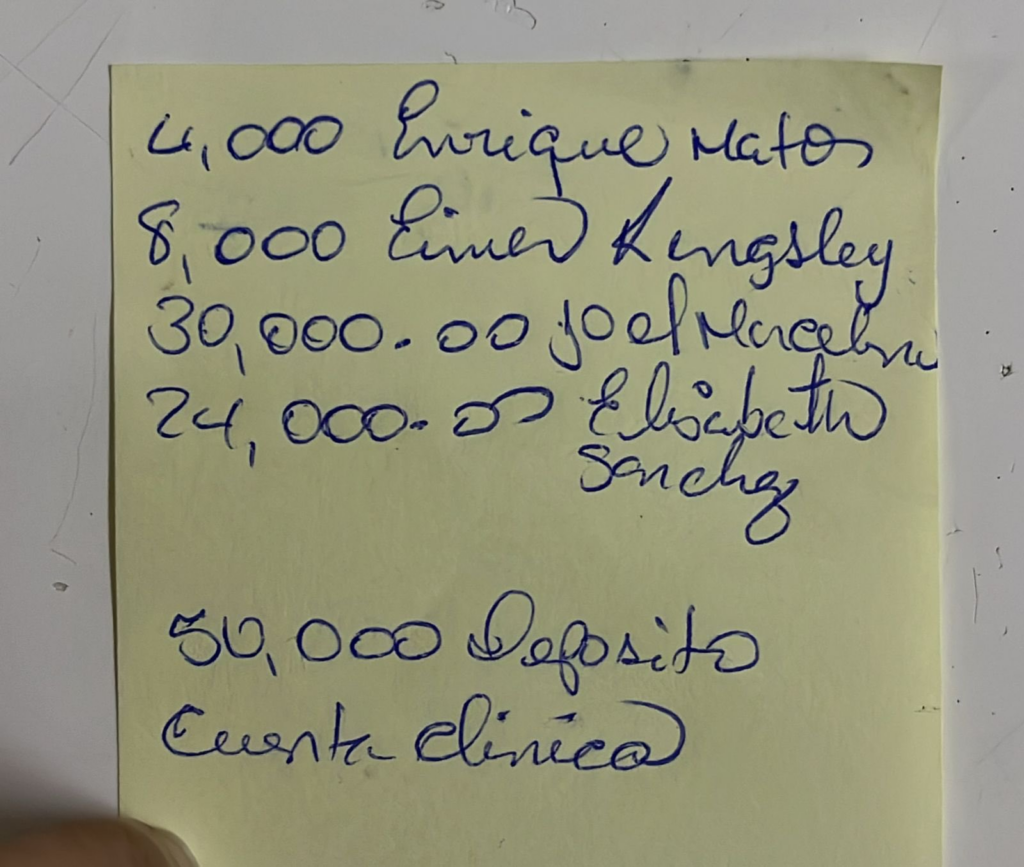 4,000 Enrique Matos
8,000 Eimer Kingsley
30,000.00 Joel Marcelino
24,000.00 Elisabeth
Sanchez
50,000 Deposito
Cuenta Clinica